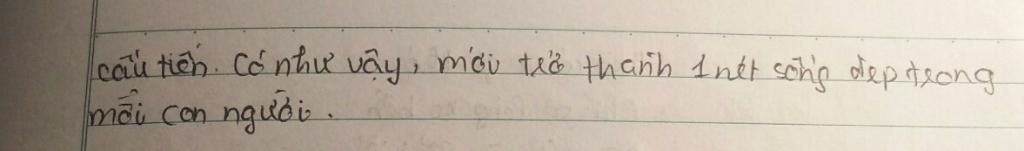 cầu tiến. Có như vậy, mới trở thành 1 nét sống đẹp trong
mỗi con người.